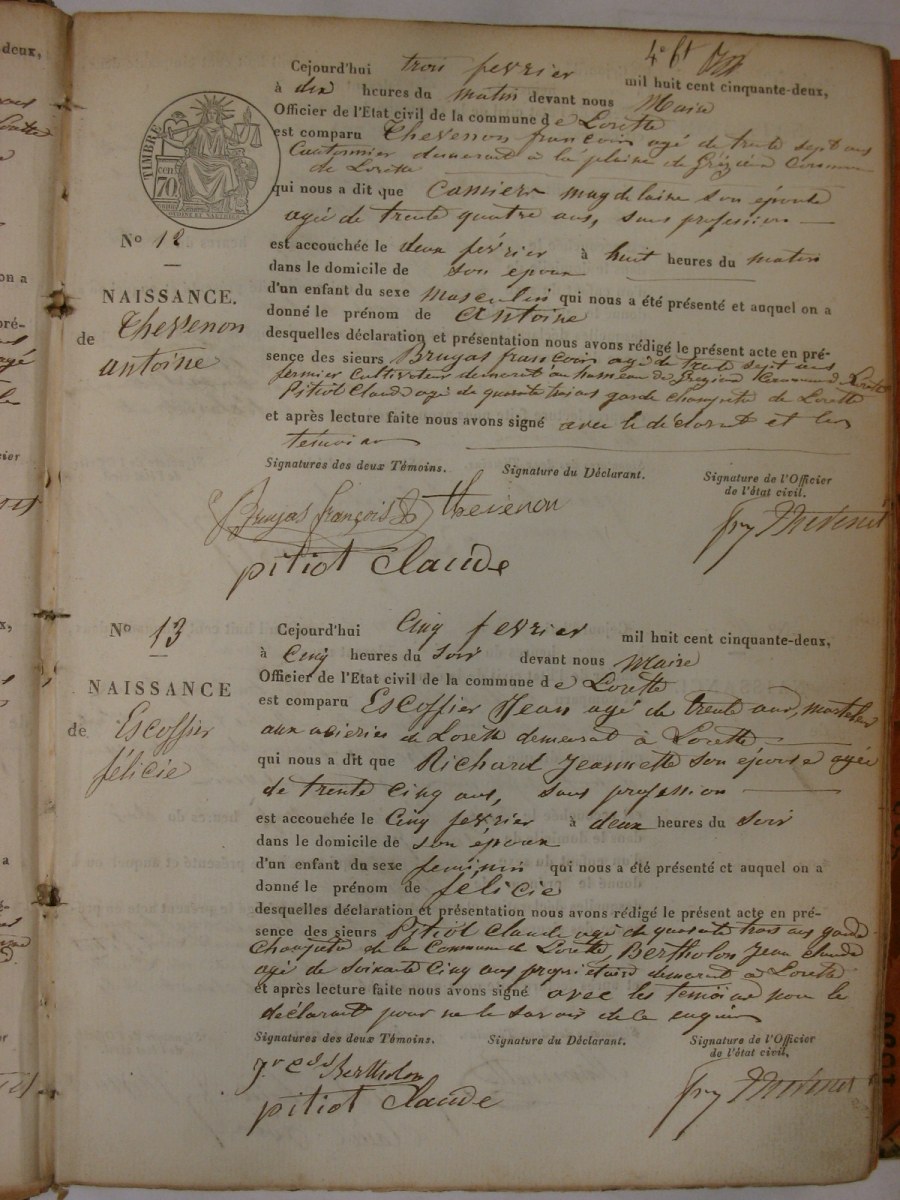 deux,
4e ft
Cejourd'hui trois fevrier mil huit cent cinquante-deux,
à dix heures du matin devant nous Maire
Officier de l'Etat civil de la commune de Lorette
est comparu Thevenon françois agé de trente sept ans
Cantonnier demeurant à la plaine de Grézieu Commune
de Lorette
qui nous a dit que Camier magdelaine son épouse
agée de trente quatre ans, sans profession
est accouchée le deux février à huit heures du matin
dans le domicile de son epoux
d'un enfant du sexe masculin qui nous a été présenté et auquel on a
donné le prénom de Antoine
desquelles déclaration et présentation nous avons rédigé le présent acte en pré-
sence des sieurs Bruyas françois agé de trente sept ans
fermier Cultivateur demeurt au hameau de Grezieu Commune de Lorette
Pitiot Claude agé de quarante trois ans garde Champetre de Lorette
et après lecture faite nous avons signé avec le déclarant et les
temoins
Signatures des deux Témoins. Signature du Déclarant. Signature de l'Officier
de l'état civil.
Bruyas françois Thevenon
pitiot Claude
TIMBRE
70 cen
No 12
NAISSANCE.
de Thevenon
antoine
No 13
NAISSANCE
de Escoffier
félicie
Cejourd'hui Cinq fevrier mil huit cent cinquante-deux,
à Cinq heures du soir devant nous Maire
Officier de l'Etat civil de la commune de Lorette
est comparu Escoffier Jean agé de trente ans, marteleur
aux acieries de Lorette demeurat à Lorette
qui nous a dit que Richard Jeannette son épouse agée
de trente Cinq ans, sans profession
est accouchée le Cinq février à deux heures du soir
dans le domicile de son epoux
d'un enfant du sexe feminin qui nous a été présenté et auquel on a
donné le prénom de félicie
desquelles déclaration et présentation nous avons rédigé le présent acte en pré-
sence des sieurs Pitiot Claude agé de quarante trois ans garde
Champetre de la Commune de Lorette, Bertholon Jean claude
agé de soixante Cinq ans proprietaire demeurat à Lorette
et après lecture faite nous avons signé avec les temoins non le
déclarant pour ne le savoir de ce enquis
Signatures des deux Témoins. Signature du Déclarant. Signature de l'Officier
de l'état civil.
Bertholon
pitiot Claude